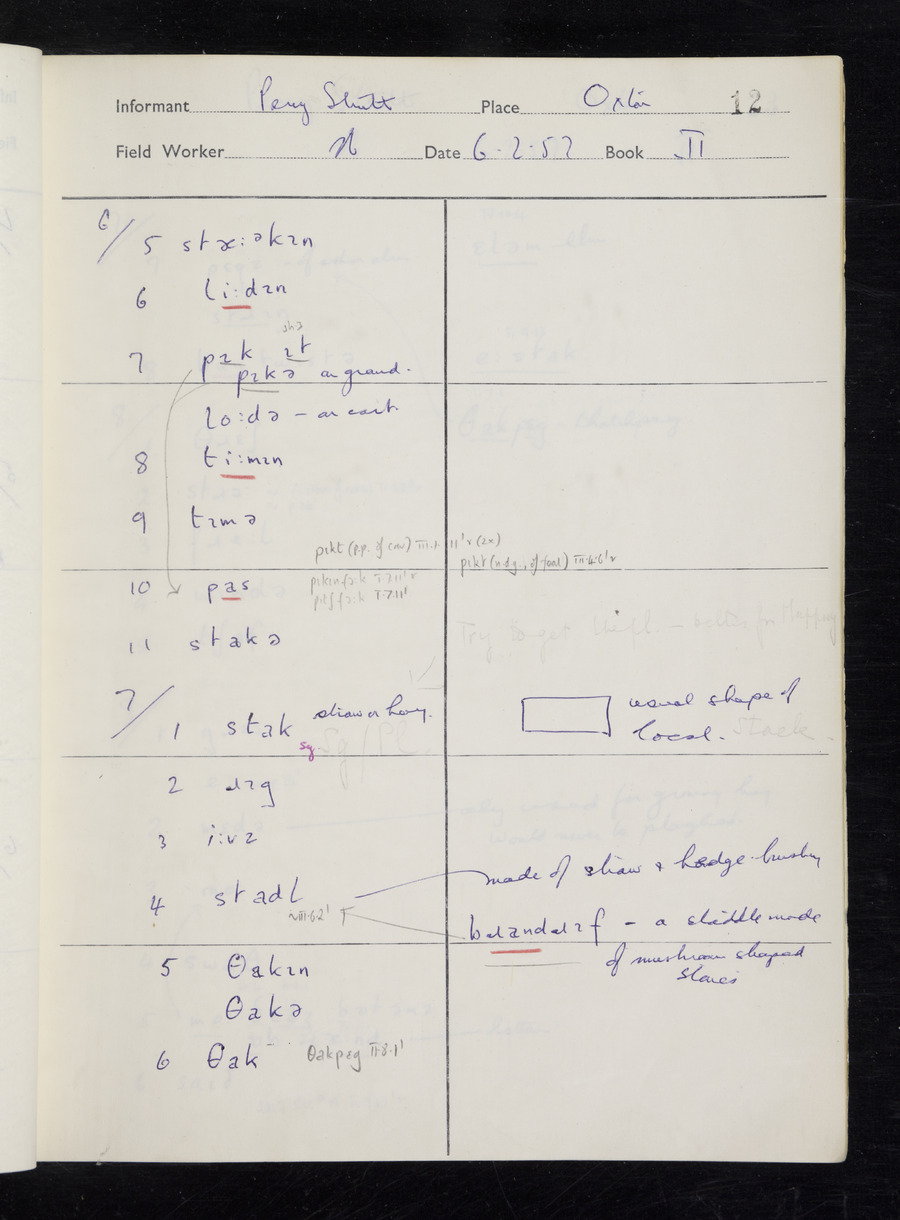 Informant Percy Shutt Place Oxton 12
Field Worker Date 6.2.57 Book II
6/ 5 stæ:əkɪn
6 li:dɪn
7 pɪk ɪt
pɪkə on ground.
lo:də – on cart.
8 ti:mɪn
9 tɪmə
pɪkt (n.dg., of food) III.4.6' r
10 pas
pɪtʃfɔ:k I.7.11'
11 stakə
Try to get – better for Mapping
7/ 1 stak straw or hay.
sg. Sg/Pl.
usual shape of
local. Stack.
2 ɹɪg
3 i:vz
4 stadl made of straw & hedge-brushing
VIII.6.2'
– a staddle made
of mushroom shaped
stones
5 θakɪn
θakə
6 θak θakpɛg II.8.1'